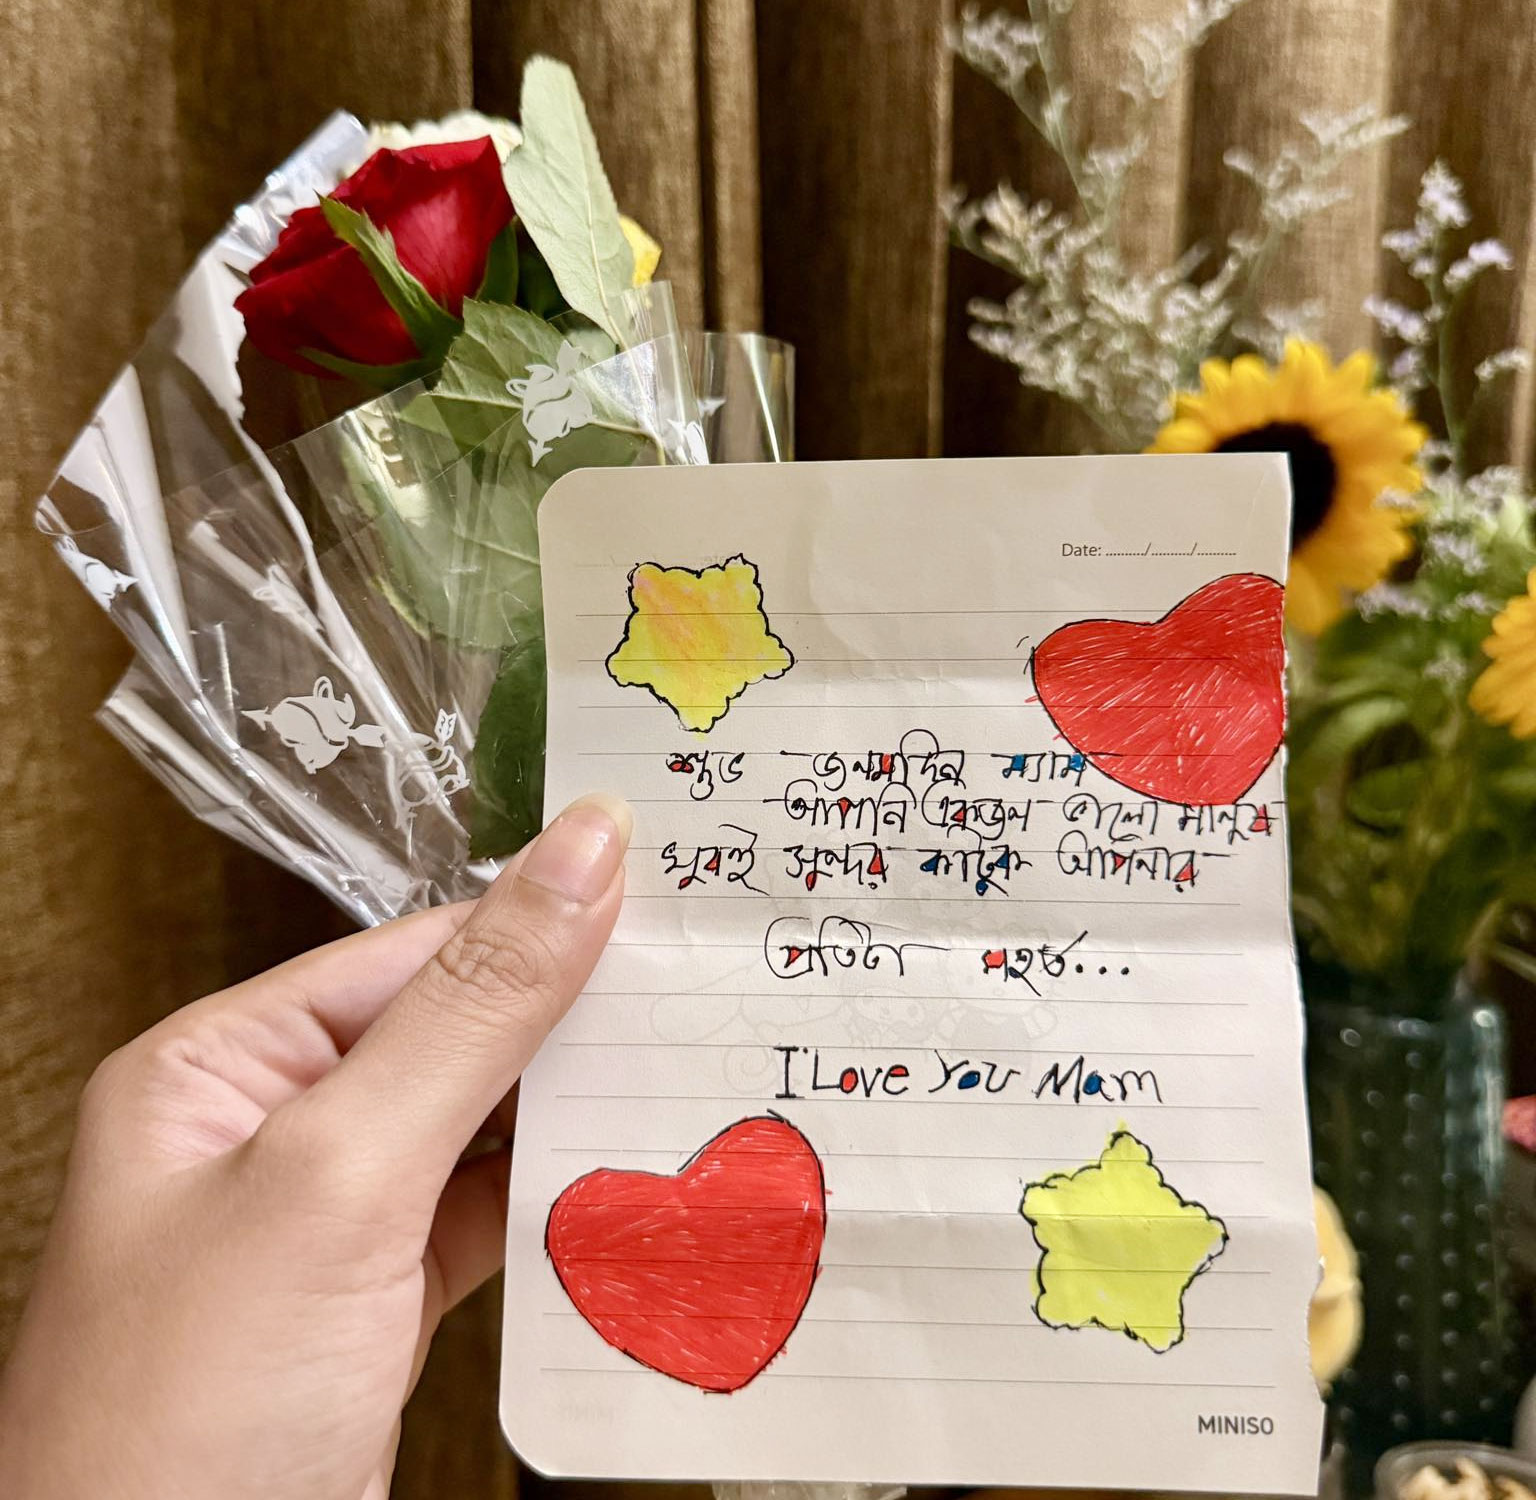 Date: ........../........../..........
শুভ জনমদিন ম্যাম
আপনি একজন ভালো মানুষ
খুবই সুন্দর কাটুক আপনার
প্রতিটা মহর্ত...
I Love You Mam
MINISO